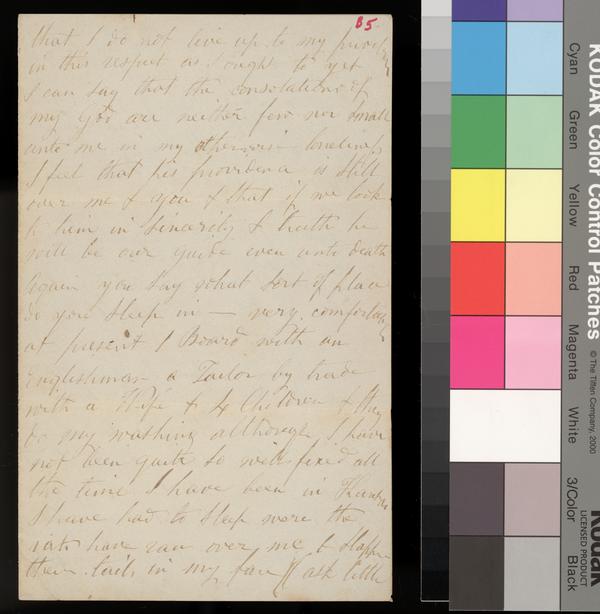 B5
that I do not live up to my
in this respect as I ought to yet
I can say that the consolations of
my God are neither few nor small
unto me in my otherwise loneliness
I feel that his providence is still
over me & you & that if we look
to him in Sincerity & truth he
will be our guide even unto death
Again you say what sort of place
do you sleep in — very comfortable
at present I Board with an
Englishman a Tailor by trade
with a Wife & 4 Children & they
do my washing although I have
not been quite so well fixed all
the time I have been in Kansas
I have had to sleep were the
rats have ran over me & slapp
their tails in my face ask little
KODAK Color Control Patches
© The Tiffen Company, 2000
Kodak
LICENSED PRODUCT
Cyan
Green
Yellow
Red
Magenta
White
3/Color
Black